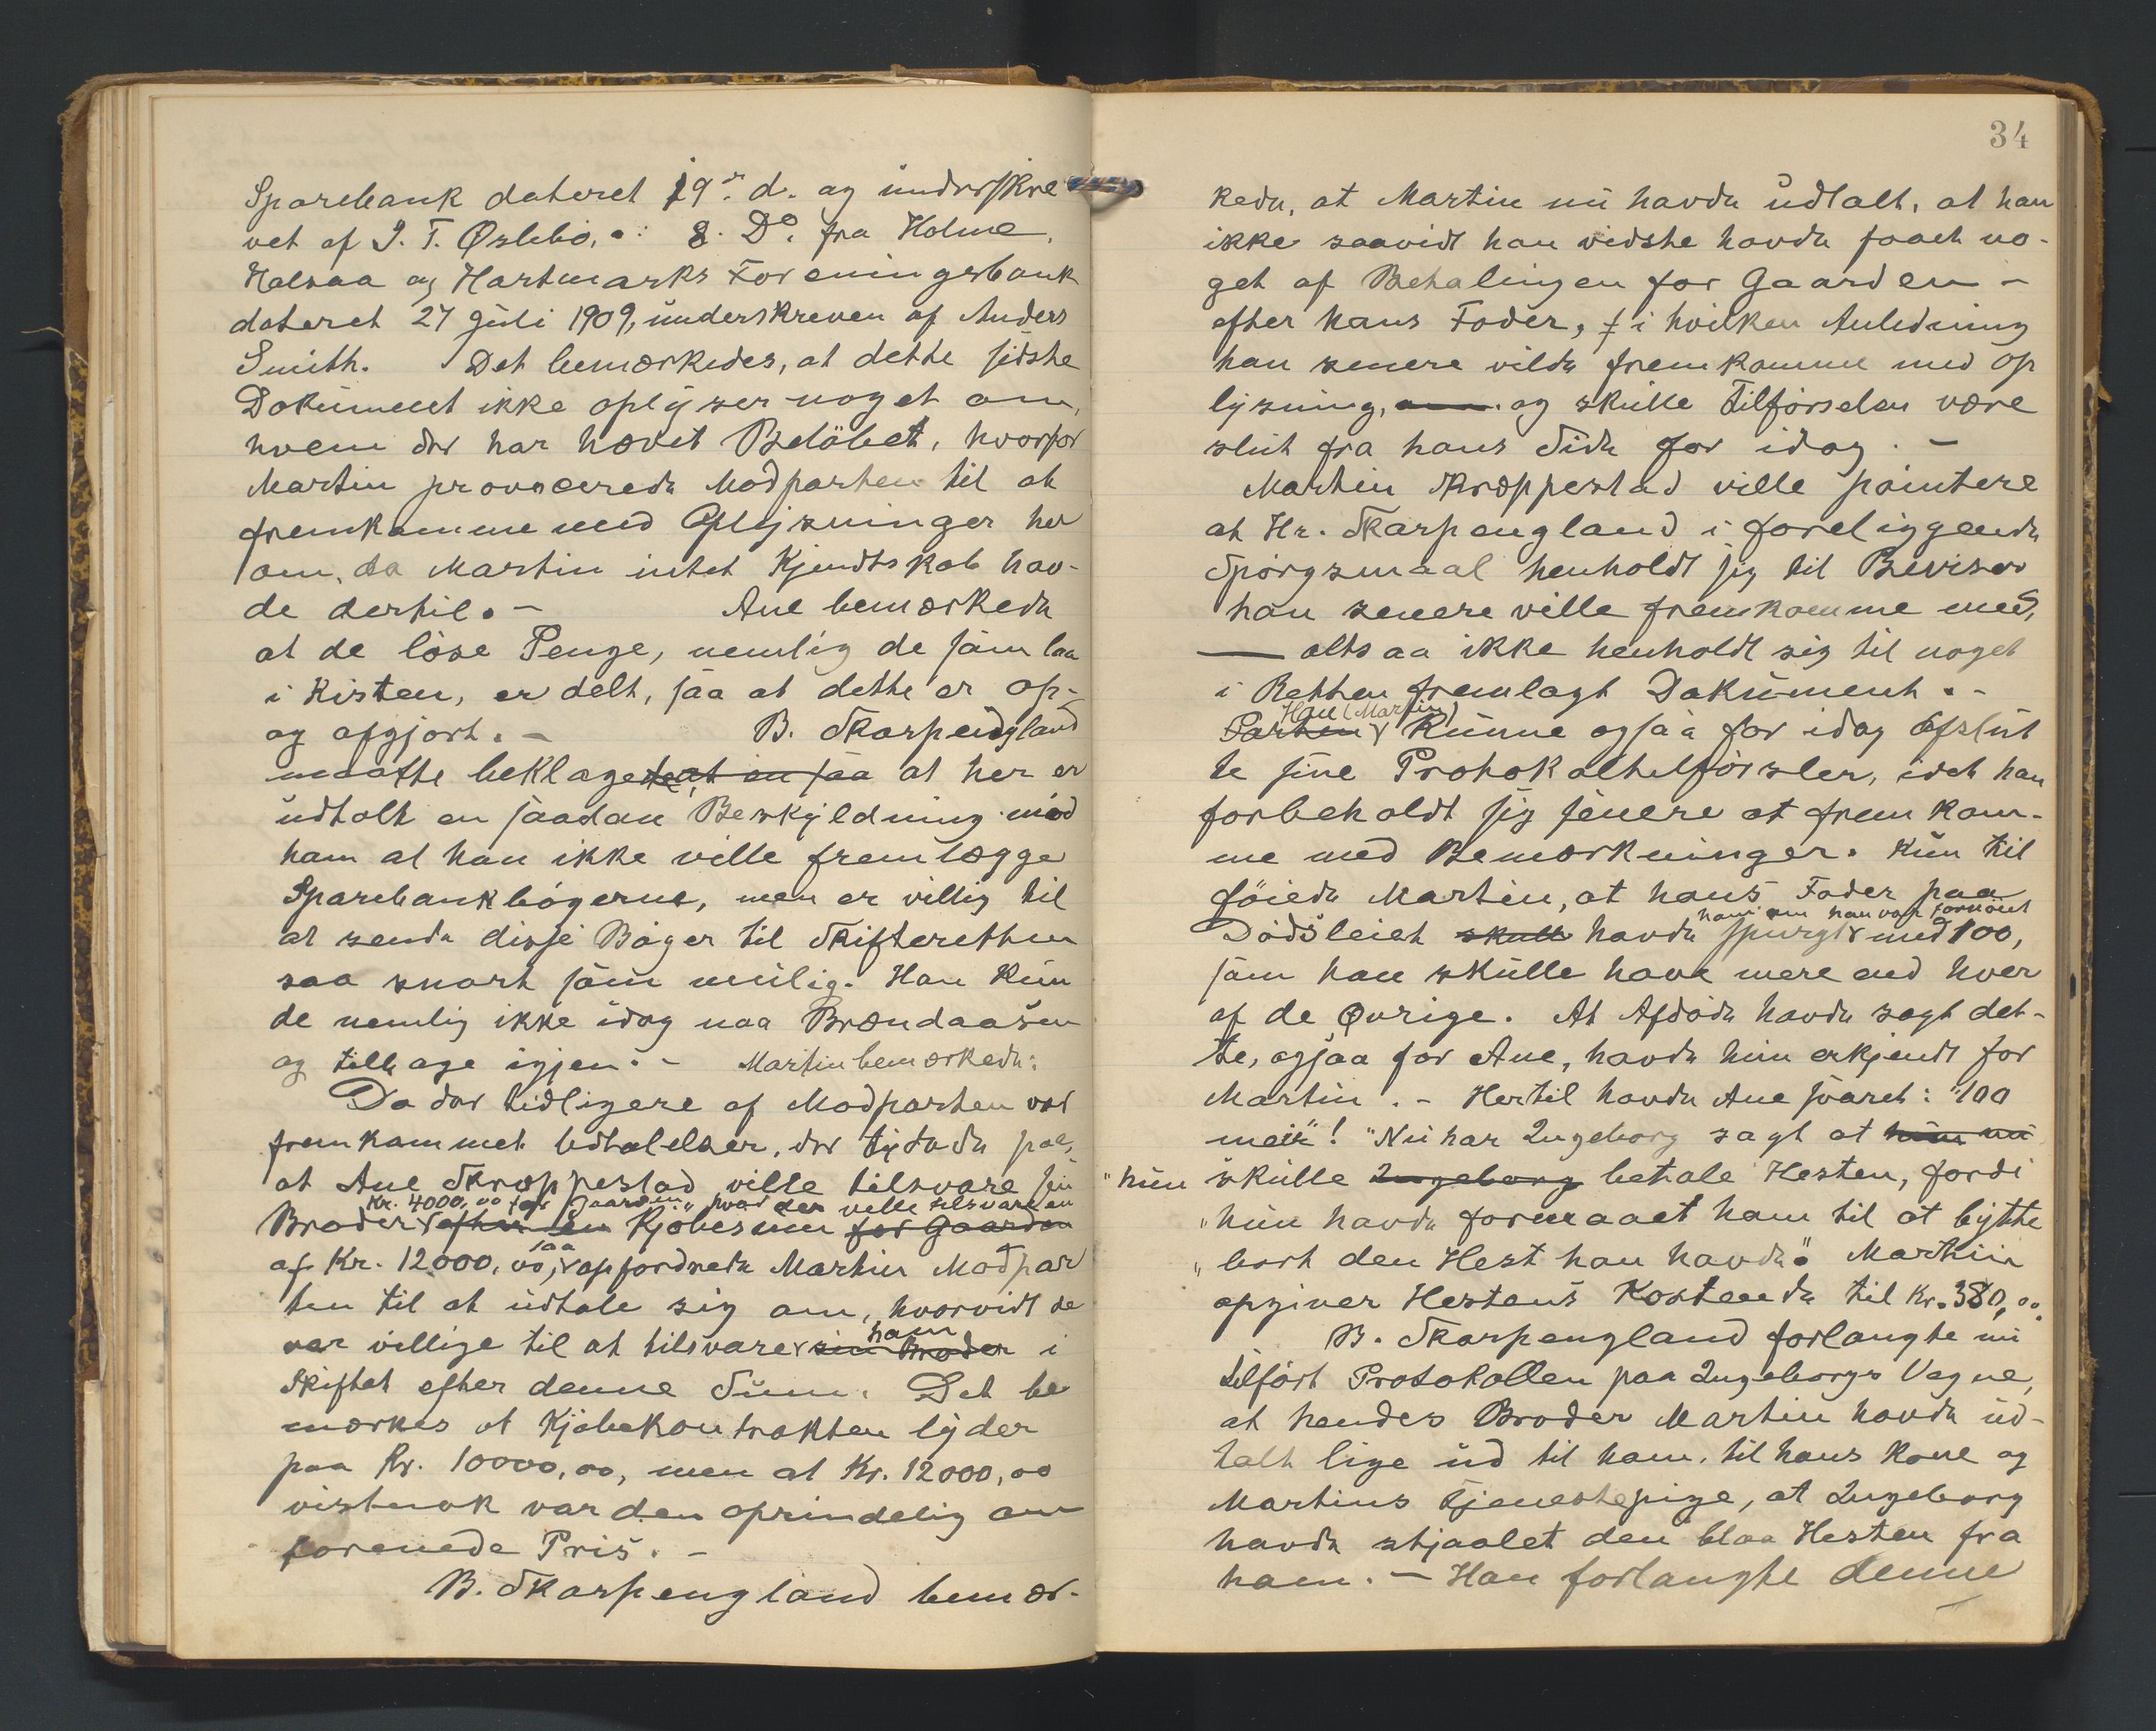 Sparebank dateret 19de d. og underskre
vet af J. T. Øslebö, 8. Do. fra Holme,
Halsaa og Hartmarks Foreningsbank
dateret 27 Juli 1909, underskreven af Anders
Smith. Det bemærkedes, at dette sidste
Dokument ikke oplyser noget om,
hvem der har hævet Belöbet, hvorfor
Martin provocerede Modparten til at
fremkomme med Oplysninger her
om, da Martin intet Kjendtskab hav-
de dertil. - Ane bemærkede
at de löse Penge, nemlig de som laa
i Kisten, er delt, saa at dette er op-
og afgjort. - B. Skarpengland
maatte beklage at her er
udtalt en saadan Beskyldning mod
ham at han ikke ville fremlægge
Sparebankbögerne, men er villig til
at sende disse Böger til Skifteretten
saa snart som mulig. Han kun
de nemlig ikke idag naa Brændaasen
og tilbage igjen. - Martin bemærkede:
Da der tidligere af Modparten var
fremkommet Udtalelser, der tydede paa,
at Ane Skræppestad ville tilsvare sin
Kr. 4000,00 for Gaarden, hvad der ville tilsvare en
Broder efter en Kjöbesum for Gaarden
af Kr. 12000,00, saa opfordrede Martin Modpar
ten til at udtale sig om, hvorvidt de
var villige til at tilsvare sin Broder ham i
Skiftet efter denne Sum. Det be
mærkes at Kjöbekontrakten lyder
paa Kr. 10000,00, men at Kr. 12000,00
vistnok var den oprindelig om
forenede Pris. -
B. Skarpengland bemær-
34
kede, at Martin nu havde udtalt, at han
ikke saavidt han vidste havde faaet no-
get af Betalingen for Gaarden -
efter hans Fader, i hvilken Anledning
han senere vilde fremkomme med Op
lysning, og skulle Tilförselen være
slut fra hans Side for idag. -
Martin Skræppestad ville pointere
at Hr. Skarpengland i foreliggende
Spörgsmaal henholdt sig til Beviser
han senere ville fremkomme med,
— altsaa ikke henholdt sig til noget
i Retten fremlagt Dokument. -
Han (Martin)
Parten kunne ogsaa for idag afslut
te sine Protokoltilförsler, idet han
forbeholdt sig senere at fremkom-
me med Bemærkninger. Kun til
föiede Martin, at hans Fader paa
ham om han var fornöiet
Dödsleiet skulle havde spurgt med 100,
som han skulle have mere end hver
af de Øvrige. At Afdöde havde sagt det-
te, ogsaa for Ane, havde hun erkjendt for
Martin. - Hertil havde Ane svaret: "100
meir"! "Nu har Ingeborg sagt at hun nu
"hun skulle Ingeborg betale Hesten, fordi
"hun havde formaaet ham til at bytte
"bort den Hest han havde." Martin
opgiver Hestens Kostende til Kr. 380,00.
B. Skarpengland forlangte nu
tilfört Protokollen paa Ingeborgs Vegne,
at hendes Broder Martin havde ud-
talt lige ud til ham, til hans Kone og
Martins Tjenestepige, at Ingeborg
havde stjaalet den blaa Hesten fra
ham. - Han forlangte denne